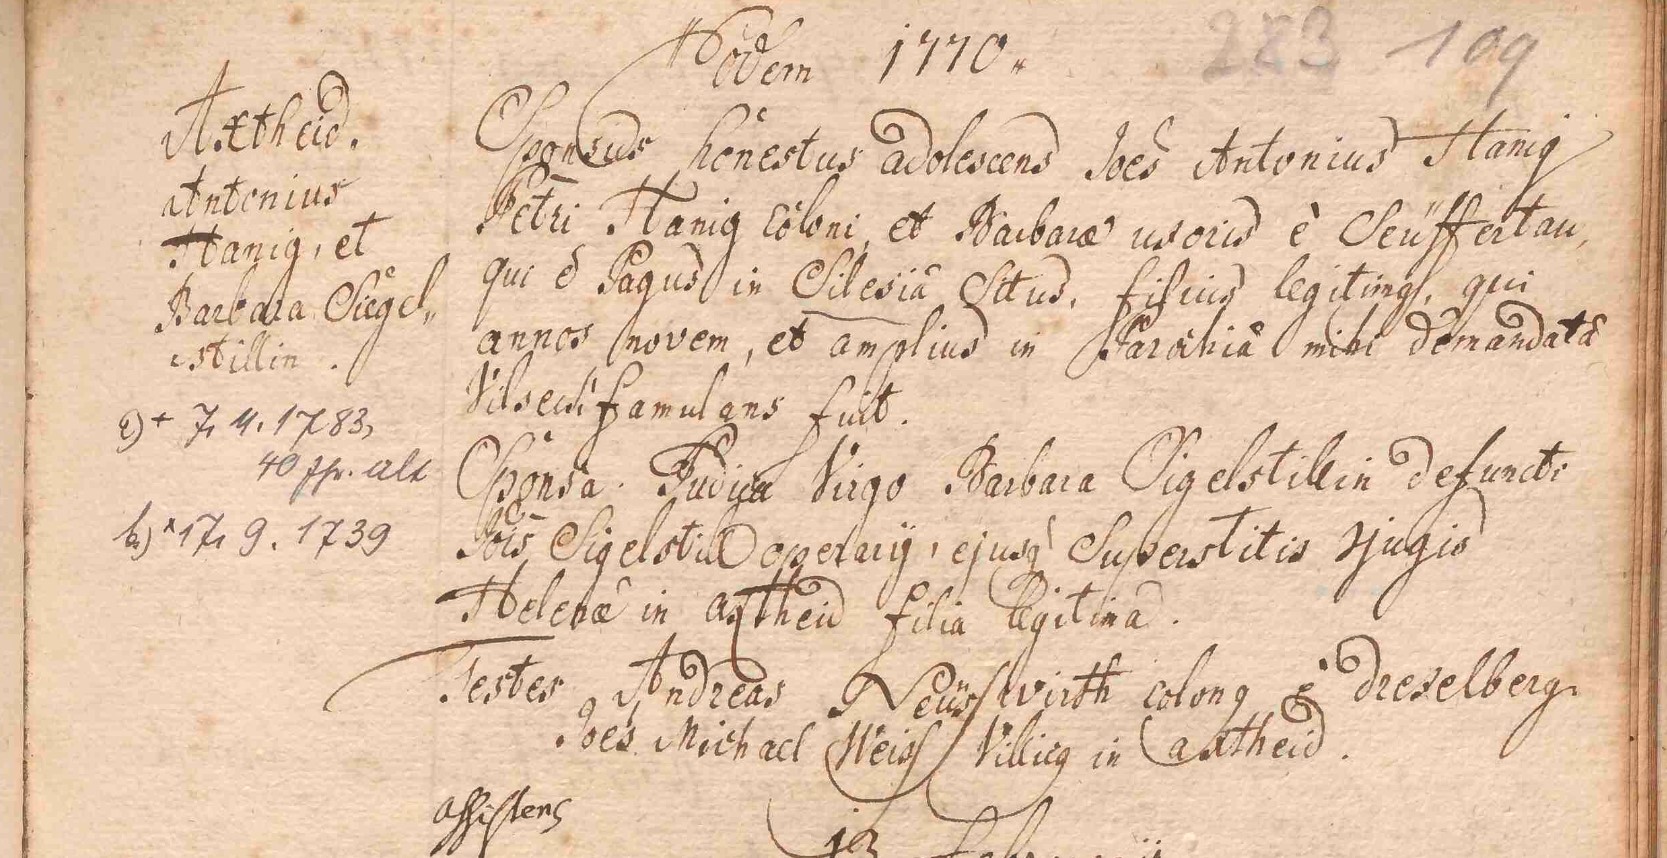 Eodem 1770.
283 109
Axtheid.
Antonius
Hanig, et
Barbara Siegel„
stillin.
a) + 7. 4. 1783,
40 jhr. alt
b) * 17. 9. 1739
Sponsus honestus adolescens Joēs Antonius Hanig
Petri Hanig Coloni, et Barbaræ uxoris è Seüffertau,
qui è Pagus in Silesiâ Situs, filius legitimq, qui
annos novem, et amplius in Parochiâ mihi demandatâ
Vilsecii famulans fuit.
Sponsa. Pudica Virgo Barbara Sigelstillin defuncti
Jois Sigelstill operarij, ejusq Superstitis conjugis
Helenæ in axtheid filia legitima.
Testes Andreas Neüswirth colonq è dreselberg.
Joēs Michael Weiss Villicq in axtheid.
assistens
13 februarii